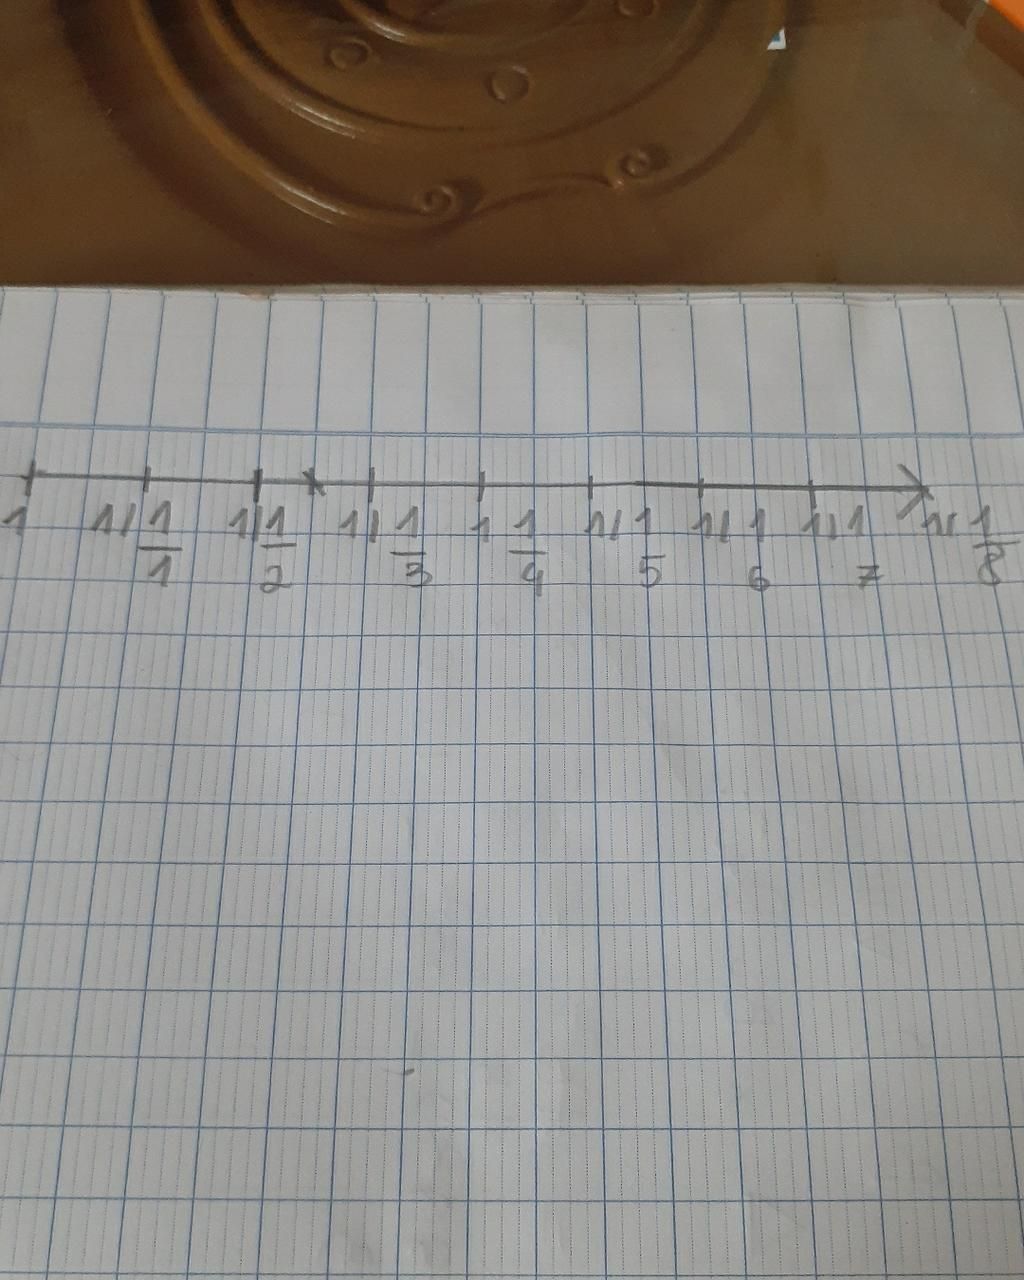 1 1/ 1/1 1/ 1/2 1/ 1/3 1 1/4 1/ 1/5 1/ 1/6 1/ 1/7 1/ 1/8